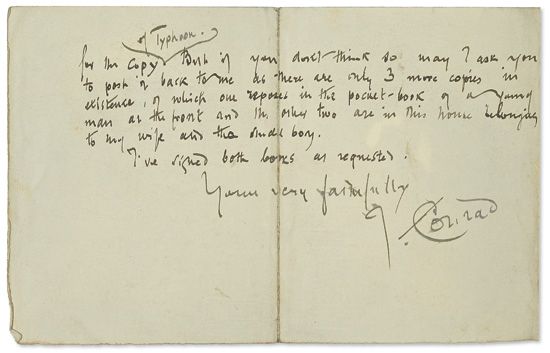 of Typhoon.
for the copy. But if you don't think so may I ask you
to post it back to me as there are only 3 more copies in
existence, of which one reposes in the pocket-book of a young
man at the front and the other two are in this house belonging
to my wife and the small boy.
I've signed both books as requested.
Yours very faithfully
J. Conrad